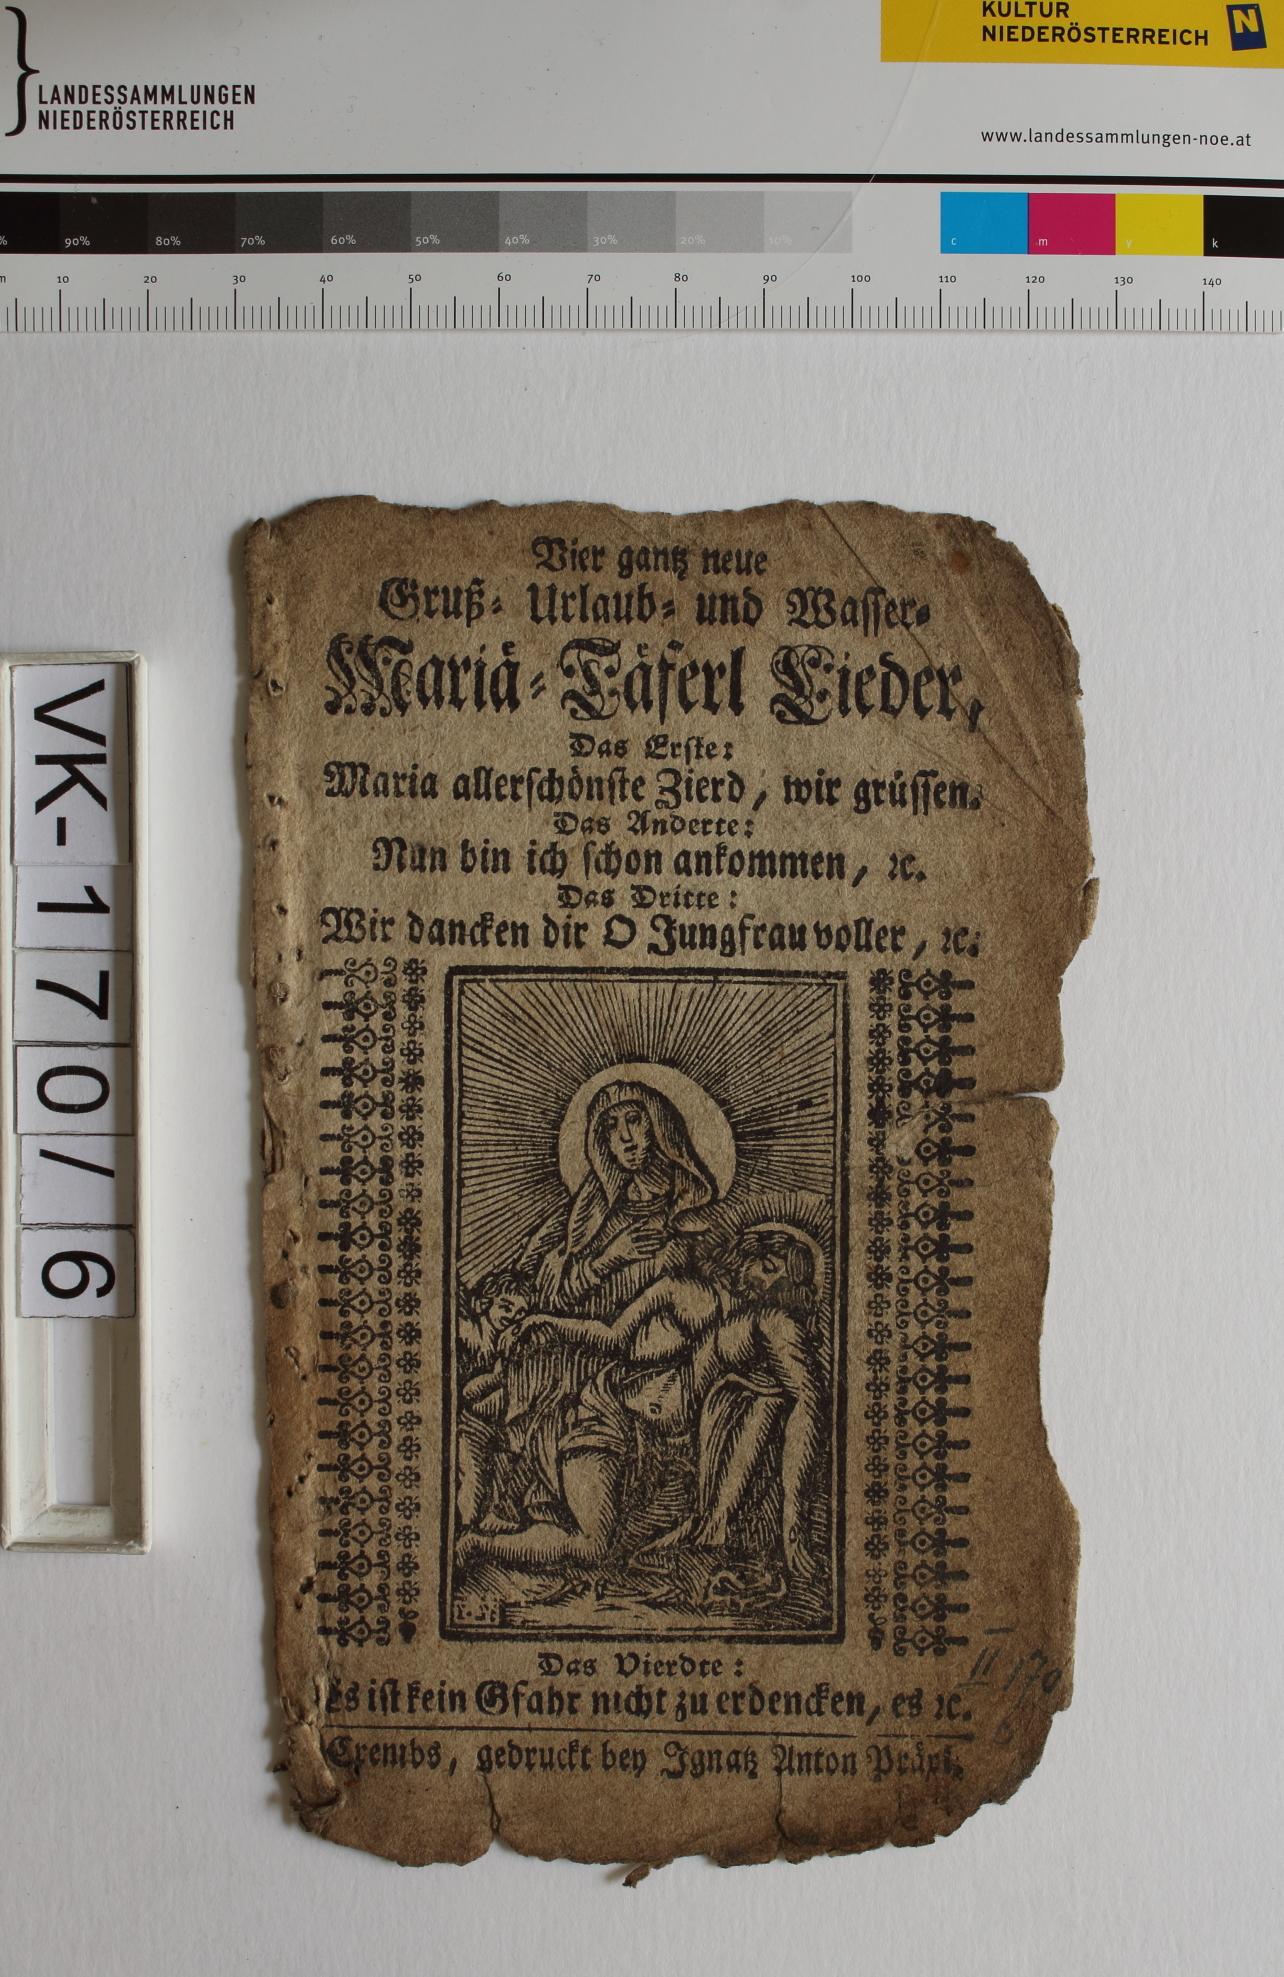 KULTUR
NIEDERÖSTERREICH
N
LANDESSAMMLUNGEN
NIEDERÖSTERREICH
www.landessammlungen-noe.at
90% 80% 70% 60% 50% 40% 30% 20% 10% c m y k
10 20 30 40 50 60 70 80 90 100 110 120 130 140
VK-170/6
Vier gantz neue
Gruß- Urlaub- und Wasser-
Mariä-Täferl Lieder,
Das Erste:
Maria allerschönste Zierd, wir grüssen.
Das Anderte:
Nun bin ich schon ankommen, ꝛc.
Das Dritte:
Wir dancken dir O Jungfrau voller, ꝛc.
Das Vierdte:
Es ist kein Gfahr nicht zu erdencken, es ꝛc.
II 170
6
Crembs, gedruckt bey Ignatz Anton Präxl.